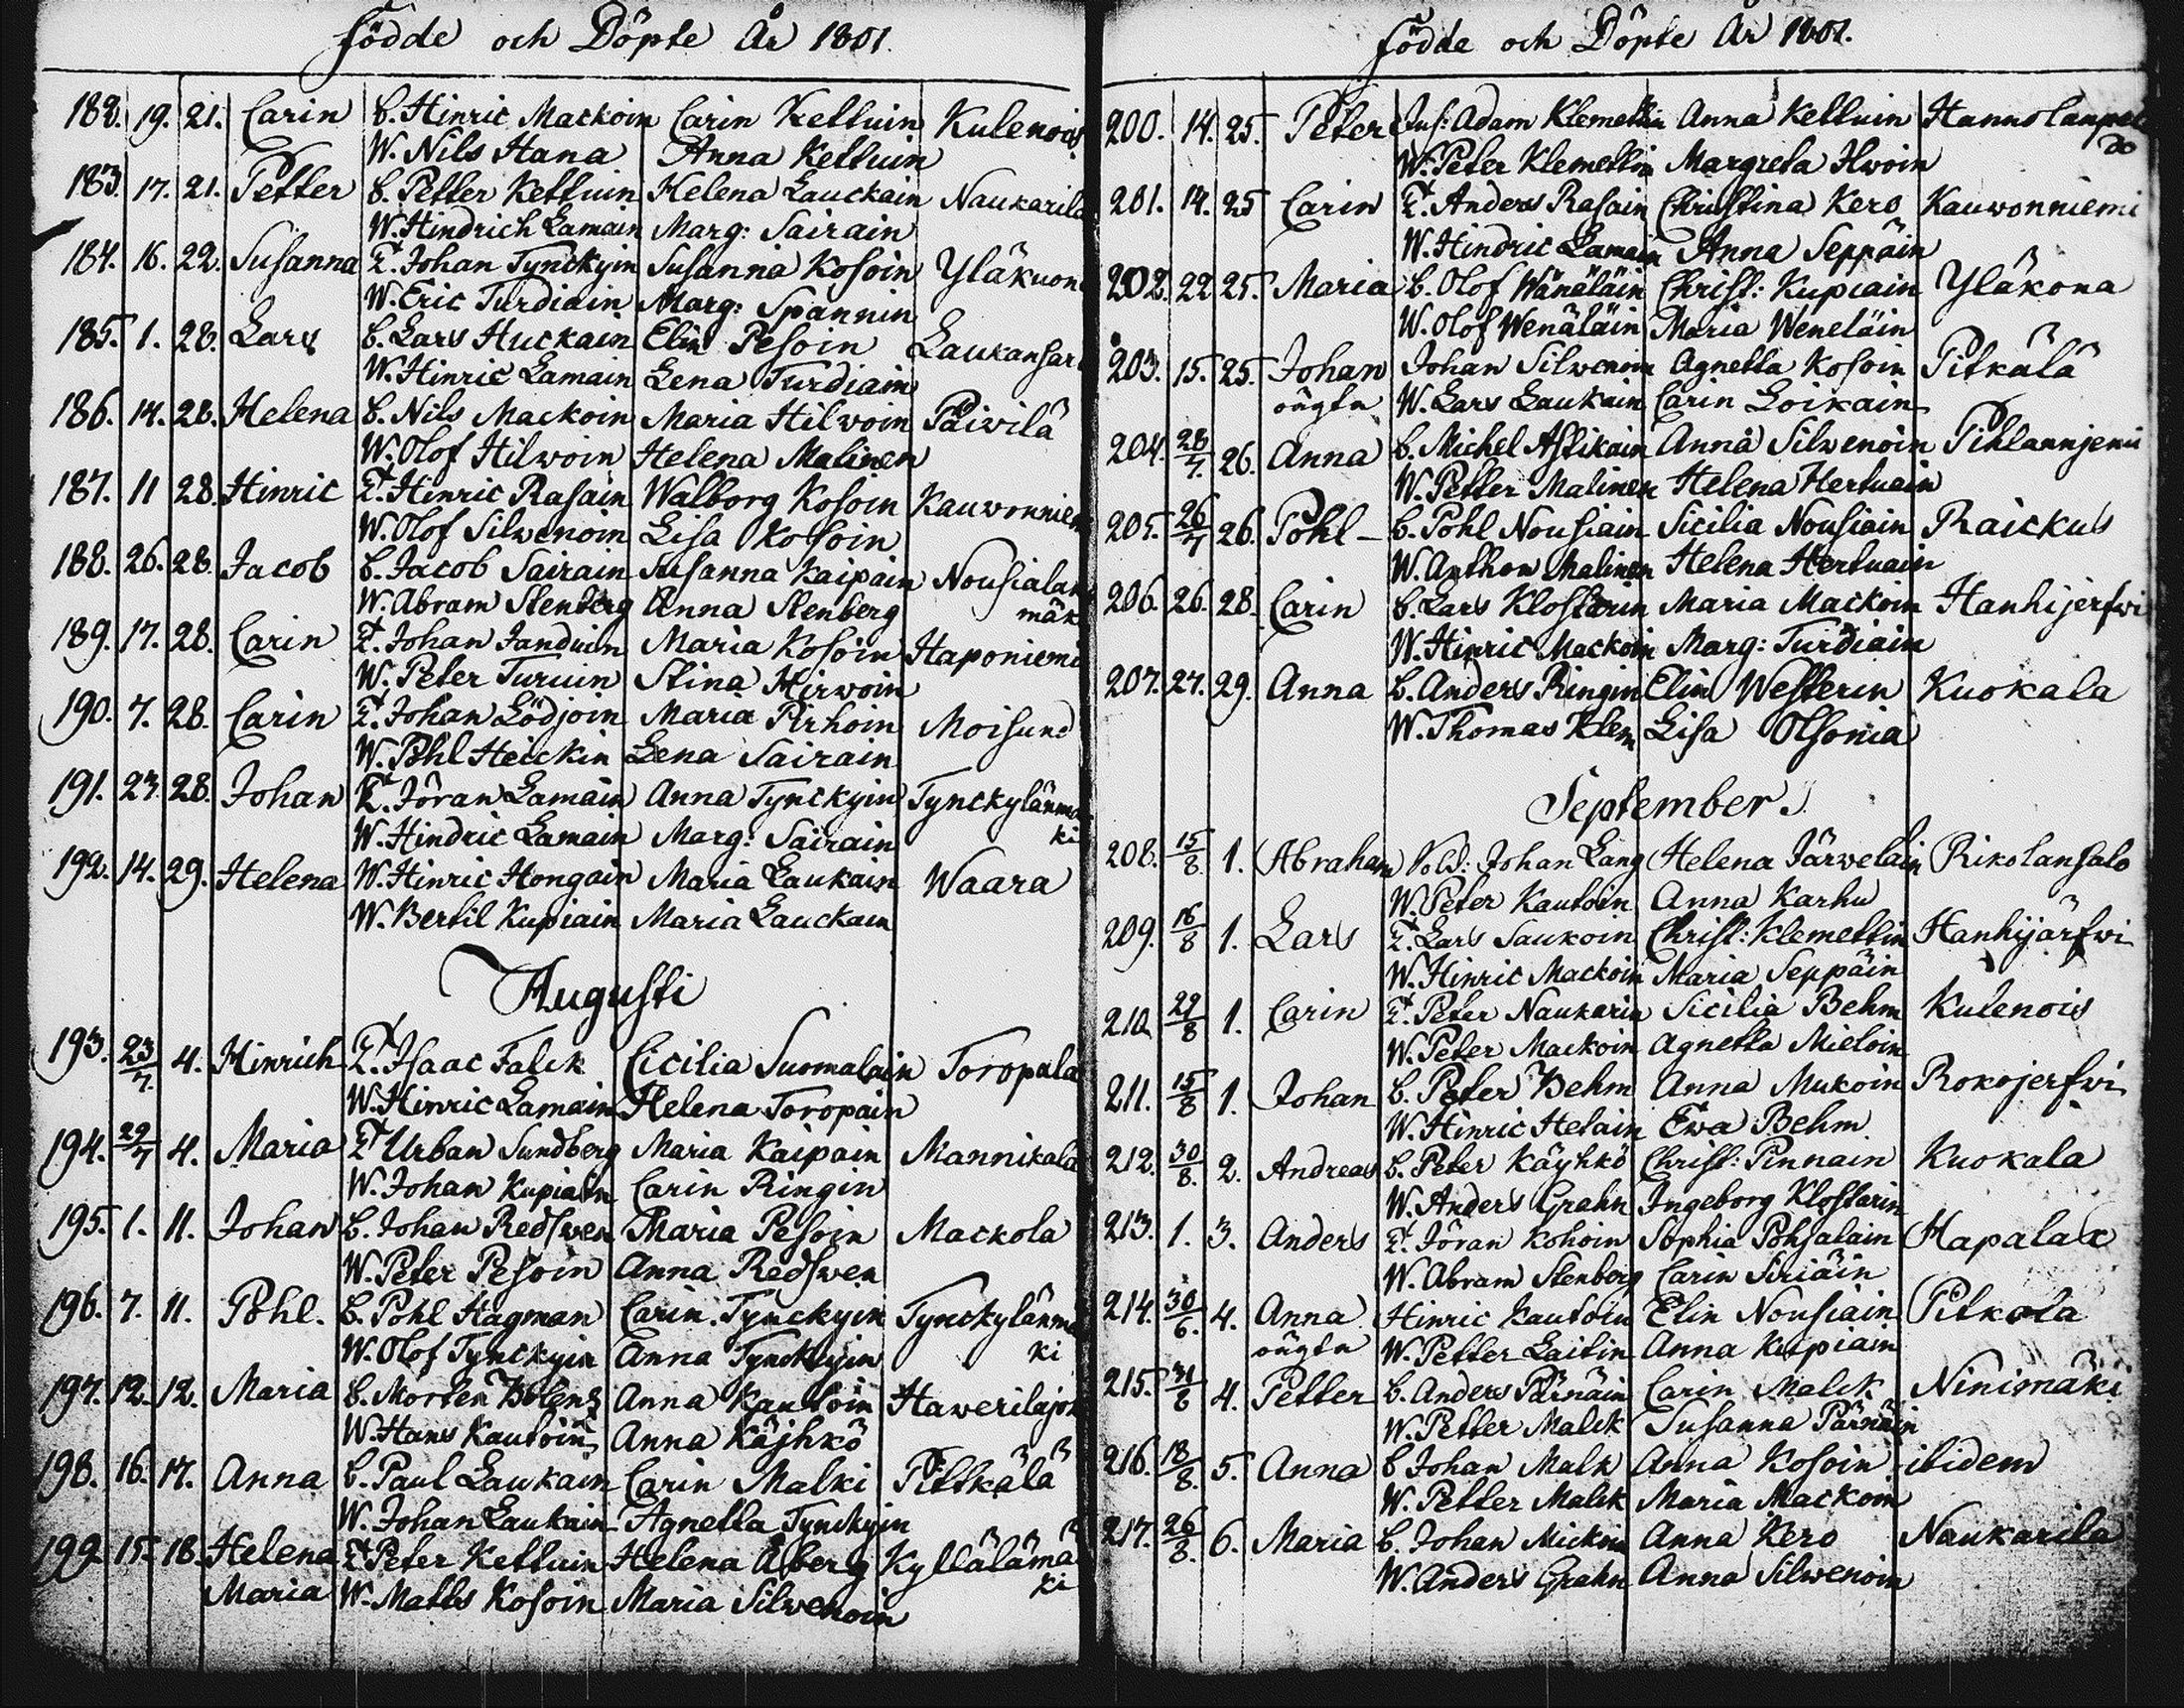 Födde och Döpte År 1801.
182. 19. 21. Carin B. Hinric Mackoin Carin Kettuin Kulenois
W. Nils Hana Anna Kettuin
183. 17. 21. Petter B. Petter Kettuin Helena Lauckain Naukarila
W. Hindrich Lamain Marg: Sairain
184. 16. 22. Susanna T. Johan Tynckyin Susanna Kosoin Yläkuon
W. Eric Turdiain Marg: Spannin
185. 1. 28. Lars B. Lars Huckain Elin Pesoin Laukansari
W. Hinric Lamain Lena Turdiain
186. 14. 28. Helena B. Nils Mackoin Maria Hilwoin Päiwilä
W. Olof Hilwoin Helena Malinen
187. 11 28. Hinric T. Hinric Rasain Walborg Kosoin Kauwonniem
W. Olof Silwenoin Lisa Kosoin
188. 26. 28. Jacob B. Jacob Sairain Susanna Kaipain Nousialan
W. Abram Stenberg Anna Stenberg mäk
189. 17. 28. Carin T. Johan Janduin Maria Kosoin Haponiemi
W. Peter Turuin Stina Hirwoin
190. 7. 28. Carin T. Johan Lödjoin Maria Pirhoin Moisund
W. Pohl Heickin Lena Sairain
191. 27. 28. Johan T. Jöran Lamain Anna Tynckyin Tynckylänmä
W. Hindric Lamain Marg: Sairain ki
192. 14. 29. Helena W. Hinric Hongain Maria Laukain Waara
W. Bertil Kupiain Maria Lauckain
Augusti
193. 23/7 4. Hinrich T. Isaac Falck Cicilia Suomalain Toropala
W. Hinric Lamain Helena Toropain
194. 29/7 4. Maria T Urban Sundberg Maria Kaipain Mannikala
W. Johan Kupiain Carin Ringin
195. 1. 11. Johan B. Johan Redswen Maria Pesoin Mackola
W. Peter Pesoin Anna Redswen
196. 7. 11. Pohl. B. Pohl Hagman Carin Tynckyin Tynckylänmä
W. Olof Tynckyin Anna Tynckyin ki
197. 12. 12. Maria B. Morten Anna Kautoin Hawerilajok
W. Hans Kautoin Anna Käjhkö
198. 16. 17. Anna B. Paul Laukain Carin Malki Pittkälä
W. Johan Laukain Agnetta Tynckyin
199 15. 18. Helena T Peter Kettuin Helena Åberg Kyllälämä
Maria W. Matts Kosoin Maria Silwenoin ki
Födde och Döpte År 1801.
200. 14. 25. Peter Adam Klemettin Anna Kettuin Hannolanpel
W. Peter Klemettin Margreta Hwoin do
201. 14. 25 Carin T. Anders Rasain Christina Kero Kauwonniemi
W. Hindric Lamain Anna Seppäin
202. 22 25. Maria B. Olof Wänäläin Christ: Kupiain Yläkona
W. Olof Wenäläin Maria Weneläin
203. 15. 25. Johan Johan Silwenoin Agnetta Kosoin Pitkälä
oägta W. Lars Laukain Carin Loikain
204. 28/7. 26. Anna B. Michel Astikain Anna Silwenoin Pihlannjemi
W. Petter Malinen Helena Hertuain
205. 26/7 26. Pohl B. Pohl Nousiain Sicilia Nousiain Raickus
W. Anthon Malinen Helena Hertuain
206. 26. 28. Carin B. Lars Klostarin Maria Mackoin Hanhijerfwi
W. Hinric Mackoin Marg: Turdiain
207. 27. 29. Anna B. Anders Ringin Elin Westerin Kuokala
W. Thomas Klem Lisa Olsonia
September.
208. 15/8. 1. Abraham Sold: Johan Lang Helena Järwelain Rikolansalo
W. Peter Kautoin Anna Karhu
209. 16/8 1. Lars T. Lars Saukoin Christ: Klemettin Hanhijärfwi
W. Hinric Mackoin Maria Seppäin
210 29/8 1. Carin T. Peter Naukarin Sicilia Behm Kulenois
W. Peter Mackoin Agnetta Mieloin
211. 15/8 1. Johan B. Peter Behm Anna Mukoin Rokojerfwi
W. Hinric Helain Ewa Behm
212. 30/8. 2. Andreas B. Peter Käyhkö Christ: Pinnain Kuokala
W. Anders Grahn Ingeborg Klostarin
213. 1. 3. Anders T. Jöran Kohoin Sophia Pohjalain Hapalax
W. Abram Stenberg Carin Siriäin
214. 30/6. 4. Anna Hinric Kautoin Elin Nousiain Pitkala
oägta W. Petter Laitin Anna Kupiain
215. 31/8 4. Petter B. Anders Pärnäin Carin Malck Ninimäki
W. Petter Malck Susanna Pärnäin
216. 13/8. 5. Anna B Johan Malk Anna Kosoin ibidem
W. Petter Malck Maria Mackoin
217. 26/8. 6. Maria B. Johan Mickoin Anna Kero Naukarila
W. Anders Grahn Anna Silwenoin